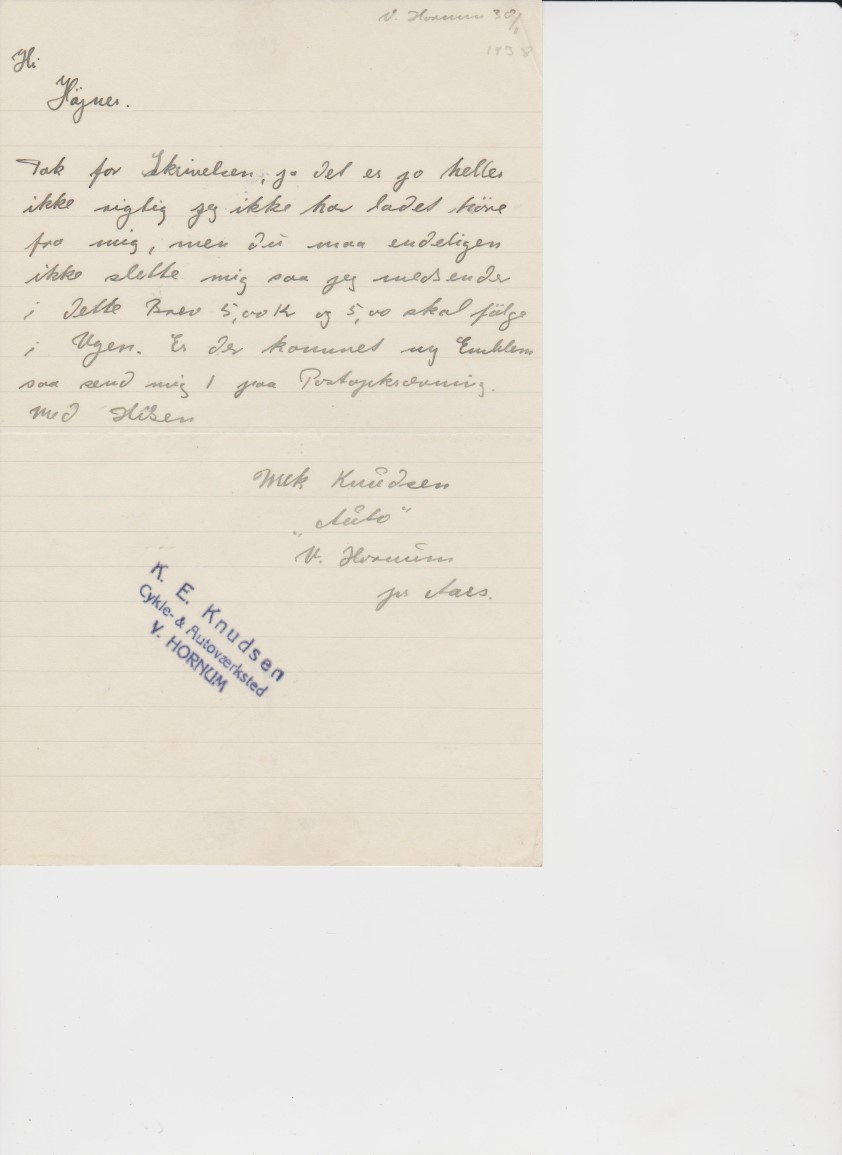 V. Hornum 30/1
193
Hr
Højner.
Tak for Skrivelsen, ja det er jo heller
ikke rigtig jeg ikke har ladet høre
fra mig, men du maa endeligen
ikke slette mig saa jeg medsender
i dette Brev 5,00 Kr og 5,00 skal følge
i Ugen. Er der kommet ny Emblem
saa send mig 1 paa Postopkrævning.
Med Hilsen
Mek Knudsen
"Auto"
V. Hornum
pr Aars.
K. E. Knudsen
Cykle- & Autoværksted
V. HORNUM